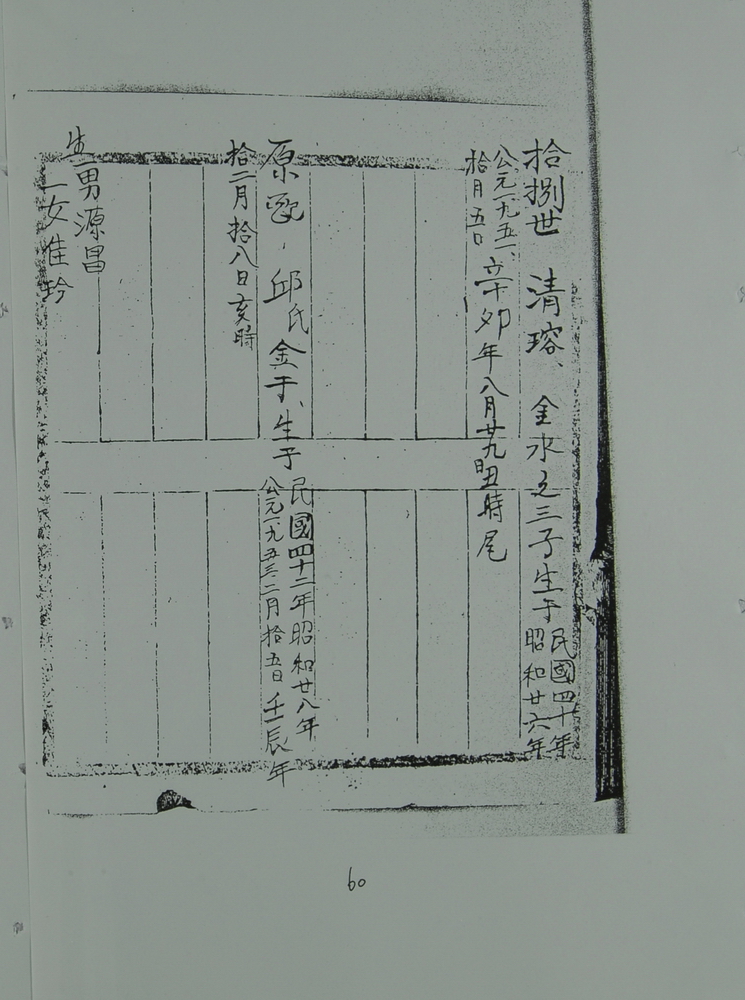 拾捌世 清瑢、金水之三子生于
民國四十年
昭和廿六年
公元一九五一、
拾月五日
辛卯年八月廿九日丑時尾
原配、邱氏金于、生于
民國四十二年昭和廿八年
公元一九五三二月拾五日壬辰年
拾二月拾八日亥時
生一男源昌
一女佳玲
60